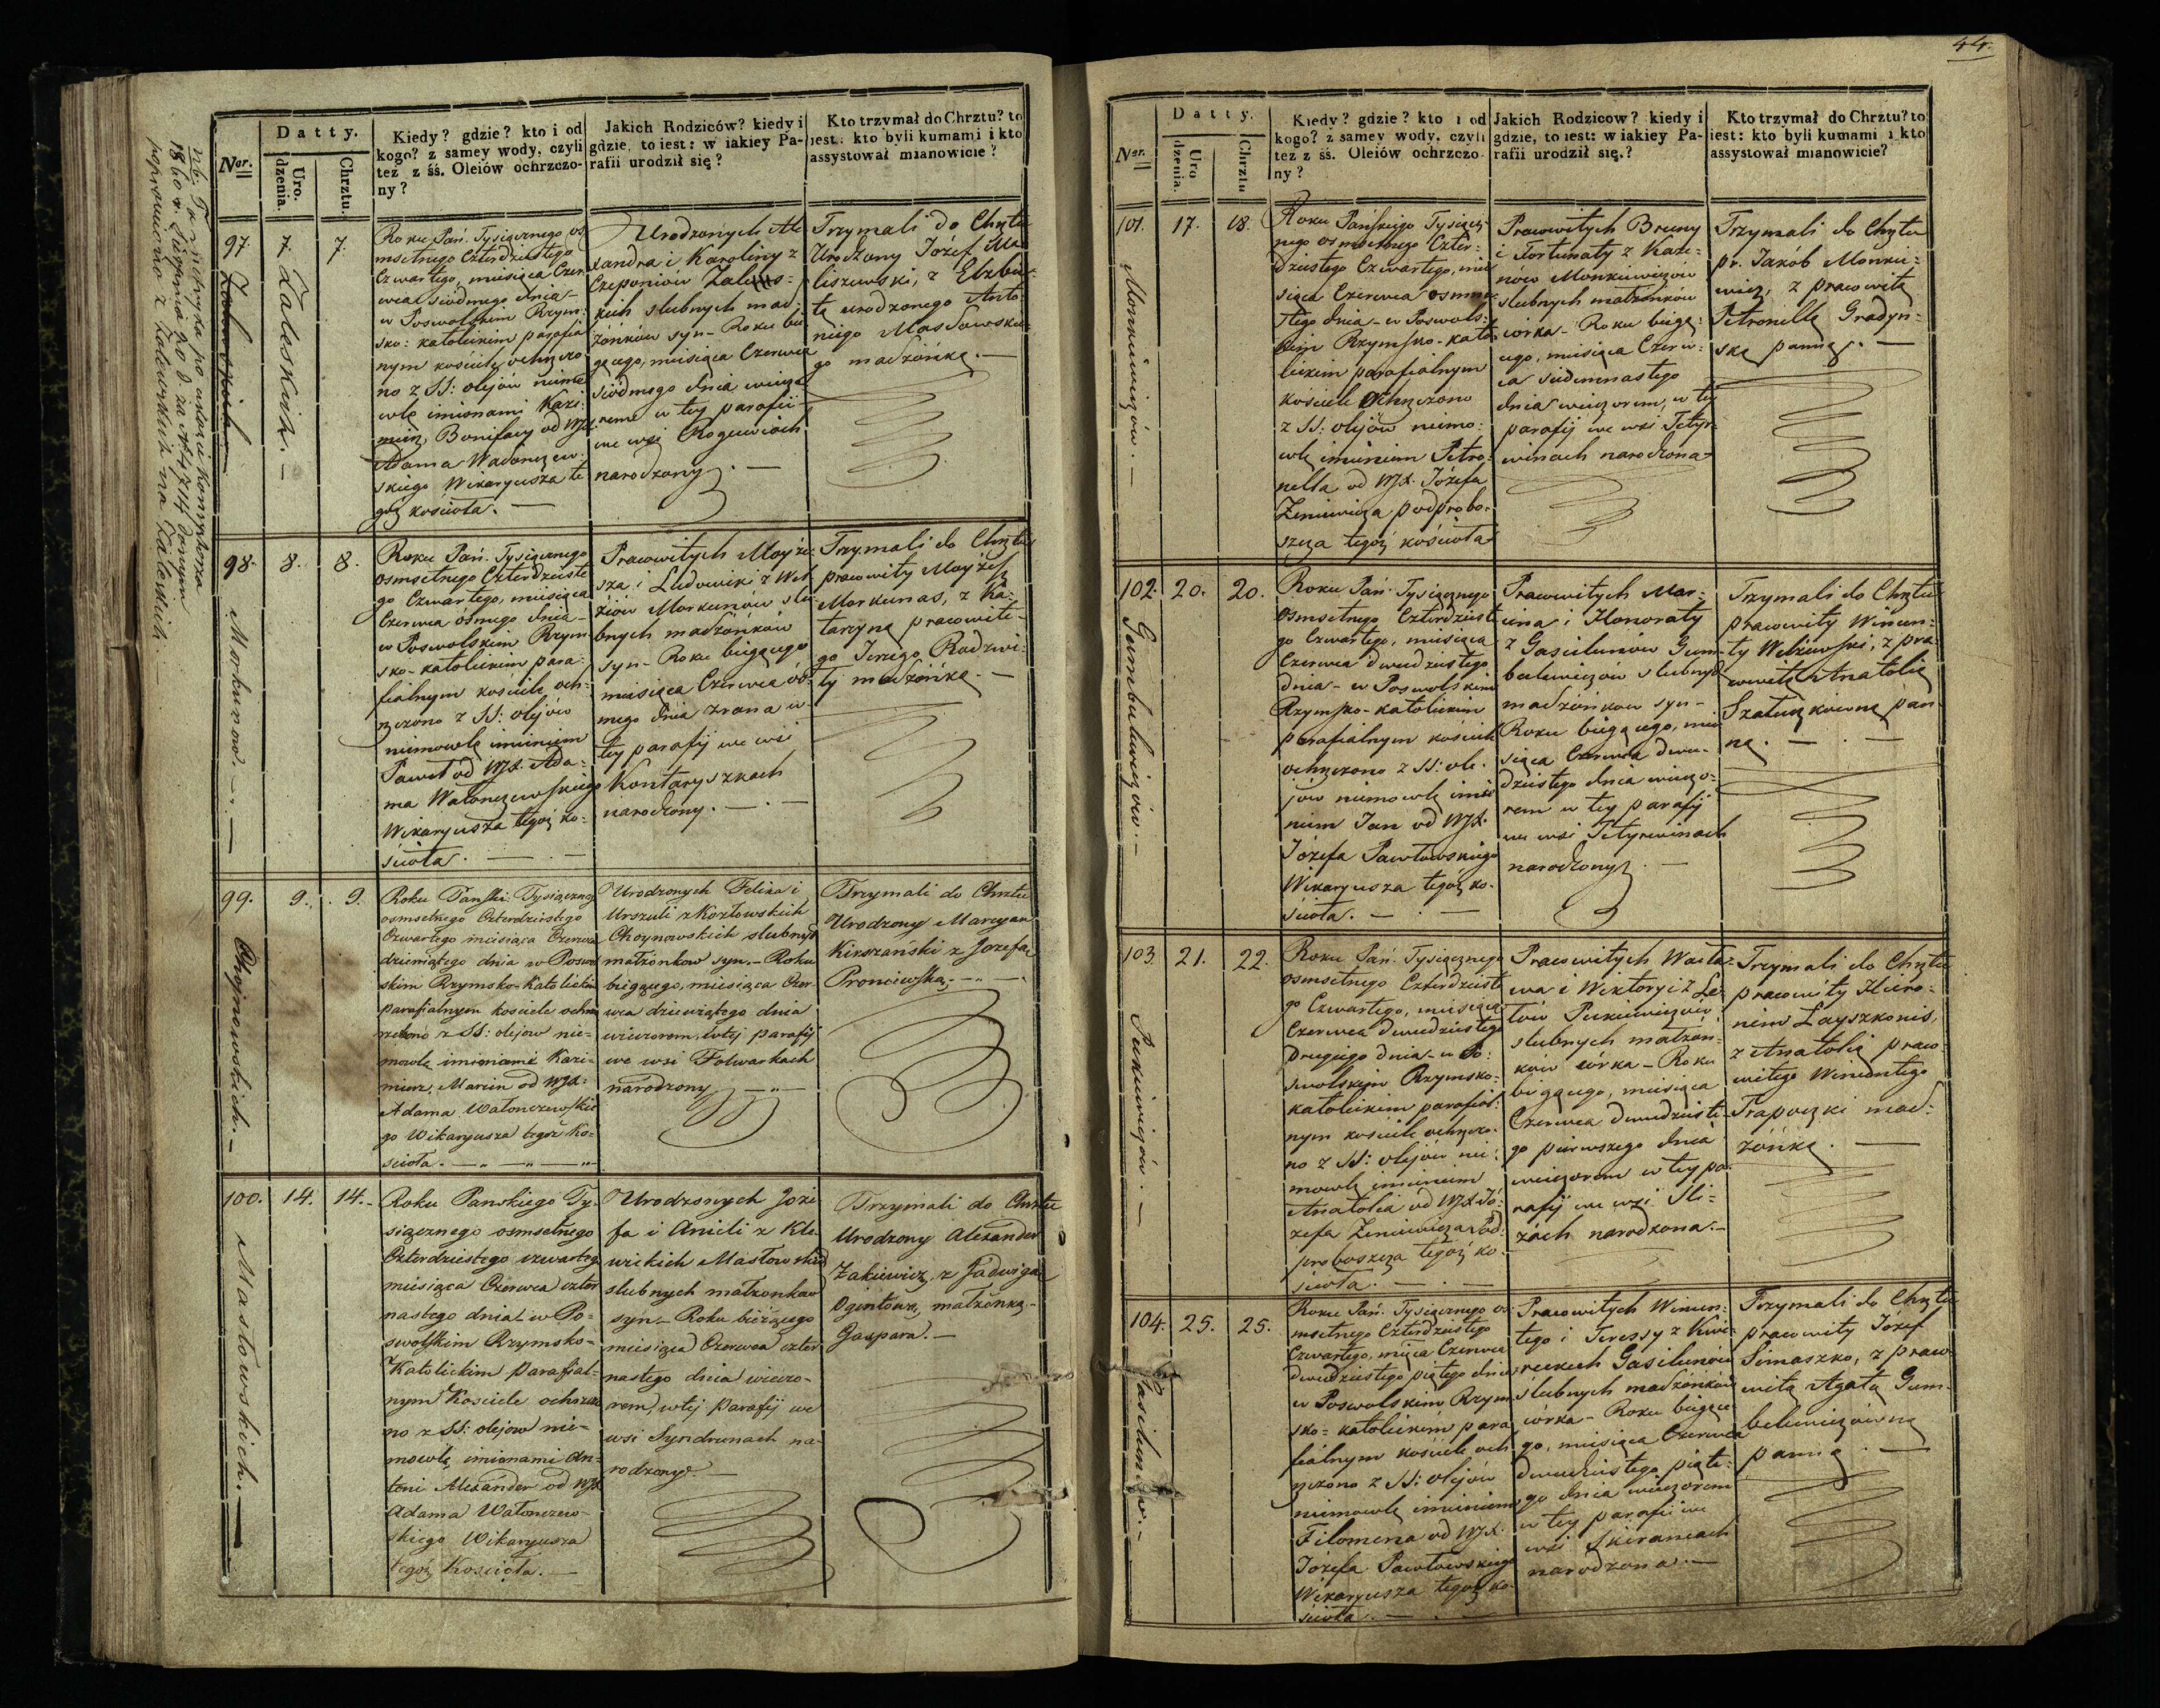 44.
nb. Ta metryka po ukazu Konsystorza
1860 r. Sierpnia 20 d. za № 1714 danym
poprawiono z Zalewskich na Zaleskich.
Datty.
Nor.
Uro.
dzenia.
Chrztu.
Kiedy? gdzie? kto i od
kogo? z samey wody, czyli
też z śś. Oleiów ochrzczo-
ny?
Jakich Rodziców? kiedy i
gdzie, to iest: w iakiey Pa-
rafii urodził się?
Kto trzymał do Chrztu? to
iest: kto byli kumami i kto
assystował mianowicie?
97.
7.
7.
Zaleskich. —
Roku Pań. Tysiącznego os
msetnego Czterdziestego
Czwartego, miesiąca Czer
wca siodmego dnia —
w Poswolskim Rzym:
sko: katolickim parafia
nym kościele ochrzczo
no z SS: olejów niemo
wlę imionami Kazi:
mierz, Bonifacy od WJX.
Adama Wałonczew:
skiego Wikaryusza te
goż kościoła. —
Urodzonych Ale
xandra i Karoliny z
Czeponiów Zales:
kich slubnych mał:
żonków syn — Roku bie
gącego, miesiąca Czerwca
siodmego dnia wieczo
rem w tey parafii
we wsi Rogiewiach
narodzony. —
Trzymali do Chrztu
Urodzony Józef Ma
liszewski, z Elzbie:
tą urodzonego Anto:
niego Masłowskie
go małżonką. —
98.
8.
8.
Morkunow. —
Roku Pań. Tysiącznego
osmsetnego Czterdzieste
go Czwartego, miesiąca
Czerwca ósmego dnia —
w Poswolskim Rzym
sko-katolickim para:
fialnym kościele och:
rzczono z SS: olejów
niemowlę imieniem
Paweł od WJX. Ada:
ma Wałonczewskiego
Wikaryusza tegoż ko:
ścioła. —
Pracowitych Mayże:
sza i Ludowiki z Wel
żiów Morkunów slu
bnych małżonków
syn — Roku biegącego
miesiąca Czerwca ós:
mego dnia zrana w
tey parafij we wsi
Kontaryszkach
narodzony. —
Trzymali do Chrztu
pracowity Mayżesz
Morkunas, z Ka:
tarzyną pracowite:
go Jerzego Radzwi:
ły małżonką. —
99.
9.
9.
Chojnowskich. —
Roku Pański. Tysiącznego
osmsetnego Czterdziestego
Czwartego miesiąca Czerwca
dziewiątego dnia w Poswol
skim Rzymsko-Katolickim
parafialnym kosciele ochrz
czono z SS: olejow nie-
mowlę imionami Kazi-
mierz, Marcin od WJX:
Adama Wałonczewskie
go Wikaryusza tegoż Ko:
scioła. —
Urodzonych Felixa i
Urszuli z Kozłowskich
Choynowskich slubnych
małżonkow syn. — Roku
biegącego, miesiąca Czer
wca dziewiątego dnia
wieczorem, w tej parafij
we wsi Folwarkach
narodzony —
Trzymali do Chrztu
Urodzony Marcyan
Kirszański z Jozefą
Pronciewską. —
100.
14.
14.
Masłowskich. —
Roku Panskiego Ty-
siącznego osmsetnego
Czterdziestego czwartego
miesiąca Czerwca czter
nastego dnia w Po-
swolskim Rzymsko-
Katolickim Parafial-
nym Kosciele ochrzczo
no z SS: olejow nie-
mowlę imionami An-
toni Alexander od WJX
Adama Wałonczew-
skiego Wikaryusza
tegoż Kościoła. —
Urodzonych Joze
fa i Anieli z Kle
wickich Masłowskich
slubnych małżonkow
syn — Roku bieżącego
miesiąca Czerwca czter
nastego dnia wieczo-
rem, w tej parafij we
wsi Syndrunach na
rodzony. —
Trzymali do Chrztu
Urodzony Alexander
Zakiewicz, z Jadwigą
Ogintową, małżonką
Gaspara. —
Datty.
Nor.
Uro
dzenia.
Chrztu
Kiedy? gdzie? kto i od
kogo? z samey wody, czyli
też z śś. Oleiów ochrzczo-
ny?
Jakich Rodzicow? kiedy i
gdzie, to iest: w iakiey Pa-
rafii urodził się.?
Kto trzymał do Chrztu? to
iest: kto byli kumami i kto
assystował mianowicie?
101.
17.
18.
Monkiewiczów. —
Roku Pańskiego Tysiącz
nego osmsetnego Czter:
dziestego Czwartego, mie
siąca Czerwca osmna
stego dnia — w Poswols:
kim Rzymsko-kato
lickim parafialnym
kościele ochrzczono
z SS: olijów niemo:
wlę imieniem Petro:
nella od WJX. Józefa
Zeniewicza podprobo:
szcza tegoż kościoła
Pracowitych Bruny
i Fortunaty z Kazie:
nów Monkiewiczów
slubnych małżonków
córka — Roku biegą:
cego, miesiąca Czerw:
ca siedmnastego
dnia wieczorem, w tey
parafij we wsi Tetyr
winach narodzona
Trzymali do Chrztu
pr. Jakób Monkie:
wicz, z pracowitą
Petronellą Gradyn:
ską panną. —
102.
20.
20.
Gumbulewiczów. —
Roku Pań. Tysiącznego
osmsetnego Czterdzieste
go Czwartego, miesiąca
Czerwca dwudziestego
dnia — w Poswolskim
Rzymsko-katolickim
parafialnym kościele
ochrzczono z SS: ole:
jów niemowlę imie
niem Jan od WJX.
Józefa Pawłowskiego
Wikaryusza tegoż ko:
ścioła. —
Pracowitych Mar:
cina i Honoraty
z Gasiulunów Gum
bulewiczów slubnych
małżonkow syn —
Roku biegącego, mie
siąca Czerwca dwu:
dziestego dnia wieczo:
rem w tey parafij
we wsi Tetyrwinach
narodzony. —
Trzymali do Chrztu
pracowity Wincen:
ty Welżewski, z pra:
cowitą Anatolią
Szatuszkówną pan
ną. —
103
21.
22.
Pukiewiczów. —
Roku Pań. Tysiącznego
osmsetnego Czterdzieste
go Czwartego, miesiąca
Czerwca dwudziestego
drugiego dnia — w Po:
swolskim Rzymsko:
katolickim parafial:
nym kościele ochrzczo:
no z SS: olejów nie:
mowlę imieniem
Anatolia od WJX. Jó:
zefa Zeniewicza Pod:
proboszcza tegoż ko:
ścioła. —
Pracowitych Wacła:
wa i Wiktoryi z Le:
tów Pukiewiczów
slubnych małżon:
ków córka — Roku
biegącego, miesiąca
Czerwca dwudzieste:
go pierwszego dnia
wieczorem w tey pa:
rafij we wsi Sli:
żach narodzona. —
Trzymali do Chrztu
pracowity Hiero:
nim Layszkonis,
z Anatolią praco:
witego Wincentego
Trapoczki mał:
żonką. —
104.
25.
25.
Gasilunow. —
Roku Pań. Tysiącznego os
msetnego Czterdziestego
Czwartego, mięca Czerwca
dwudziestego piątego dnia
w Poswolskim Rzym
sko-katolickim para
fialnym kościele och
rzczono z SS: olijów
niemowlę imieniem
Filomena od WJX.
Józefa Pawłowskiego
Wikaryusza tegoż ko:
ścioła. —
Pracowitych Wincen:
tego i Teressy z Kwie:
reckich Gasilunów
slubnych małżonków
córka — Roku biegące
go, miesiąca Czerwca
dwudziestego piąte:
go dnia wieczorem
w tey parafii we
wsi Skiraniach
narodzona. —
Trzymali do Chrztu
pracowity Józef
Simaszko, z praco
witą Agatą Gum
belewiczówną
panną. —